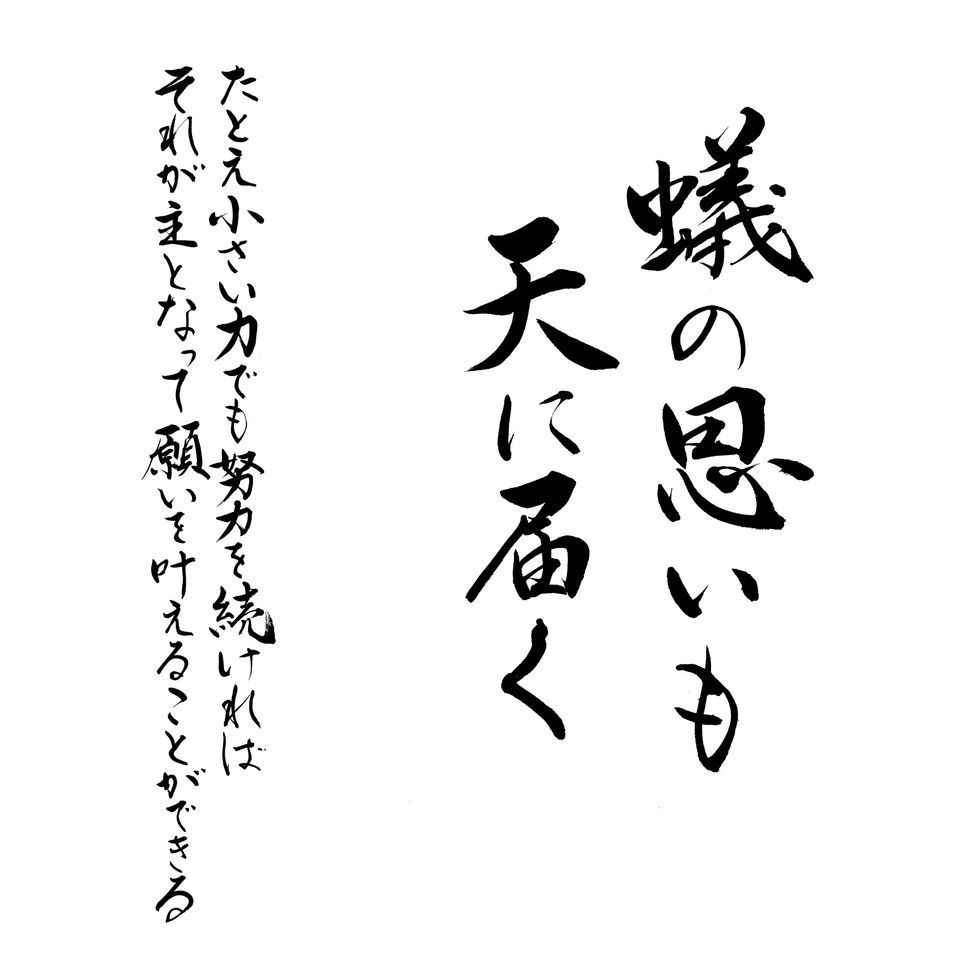 蟻の思いも
天に届く
たとえ小さい力でも努力を続ければ
それが主となって願いを叶えることができる